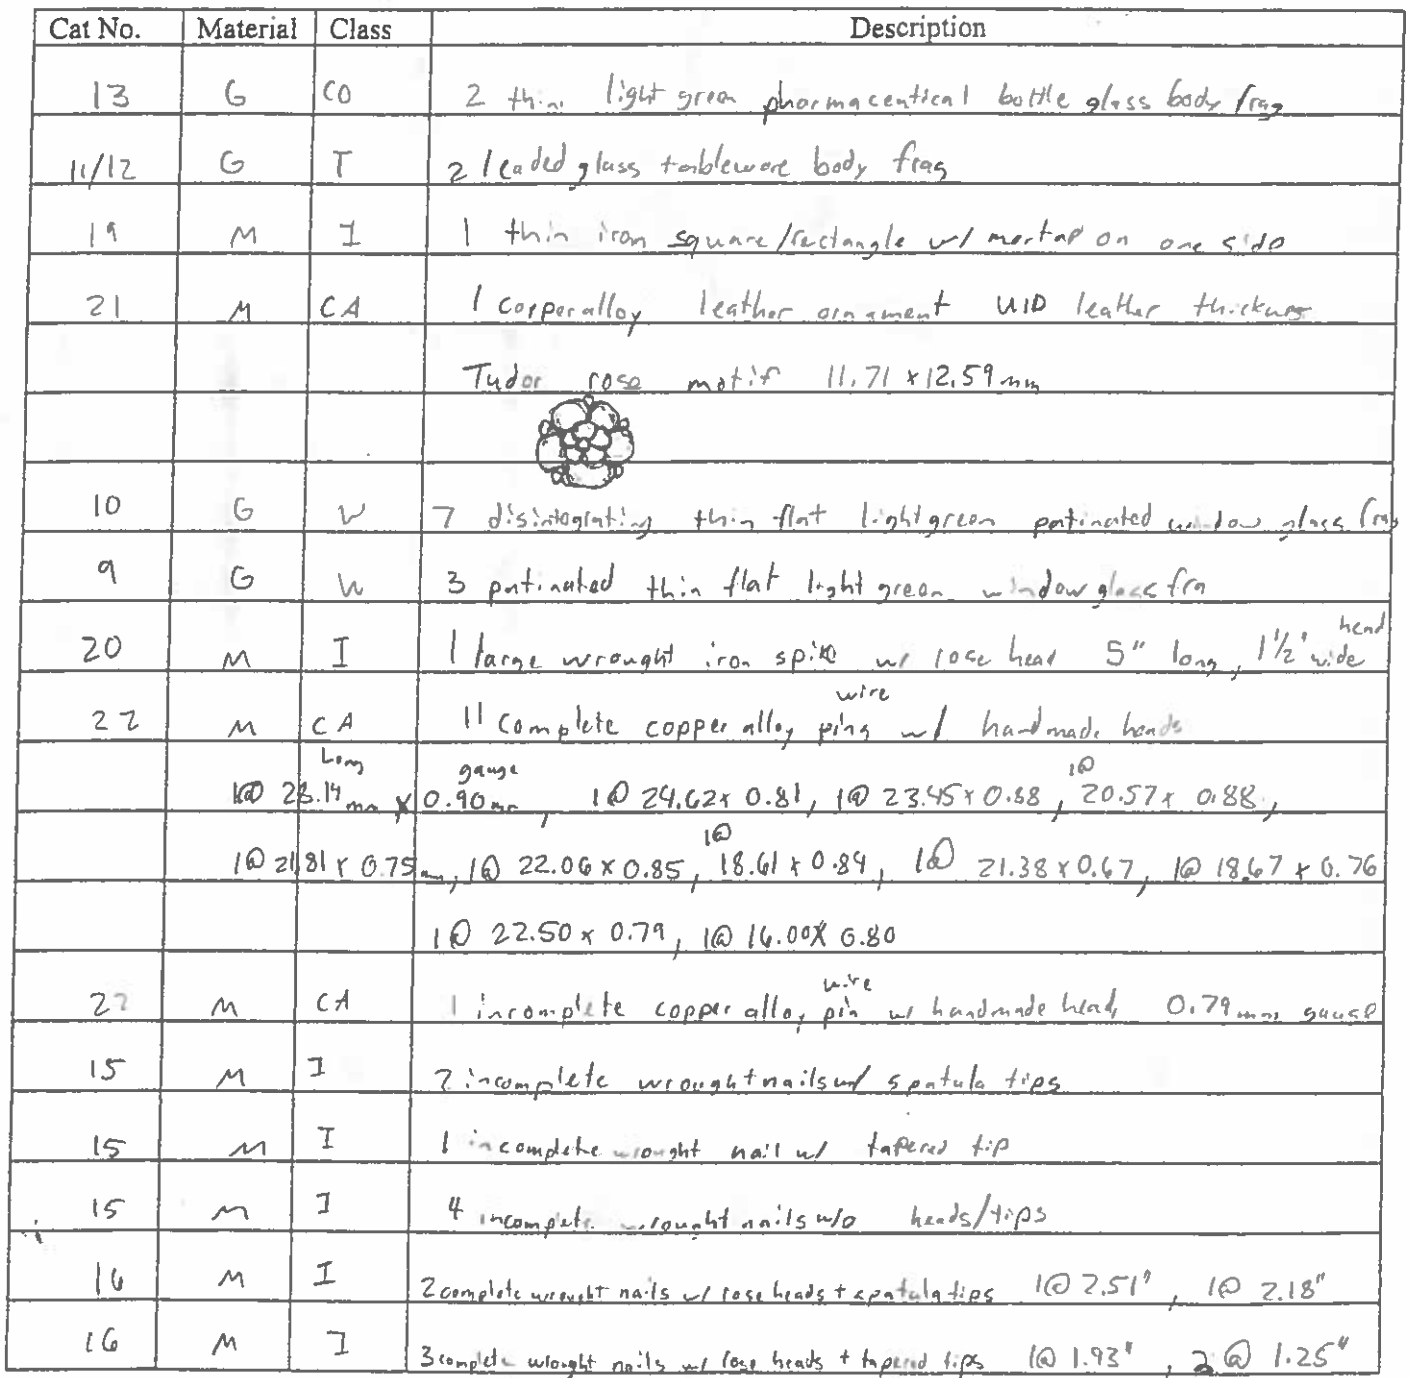 Cat No. Material Class Description
13 G CO 2 thin light green pharmaceutical bottle glass body frag
11/12 G T 2 leaded glass tableware body frag
19 M I 1 thin iron square/rectangle w/ mortar on one side
21 M CA 1 copper alloy leather ornament UID leather thickness
Tudor rose motif 11.71 x 12.59 mm
10 G W 7 disintegrating thin flat light green patinated window glass frag
9 G W 3 patinated thin flat light green window glass fra
head
20 M I 1 large wrought iron spike w/ rose head 5" long, 1 1/2" wide
wire
22 M CA 11 complete copper alloy pins w/ handmade heads
Long gauge 1@
1@ 28.14 mm x 0.90 mm, 1@ 24.62 x 0.81, 1@ 23.45 x 0.88, 20.57 x 0.88,
1@
1@ 21.81 x 0.75 mm, 1@ 22.06 x 0.85, 18.61 x 0.84, 1@ 21.38 x 0.67, 1@ 18.67 x 0.76
1@ 22.50 x 0.79, 1@ 16.00 x 0.80
wire
22 M CA 1 incomplete copper alloy pin w/ handmade head, 0.79 mm gauge
15 M I 2 incomplete wrought nails w/ spatula tips
15 M I 1 incomplete wrought nail w/ tapered tip
15 M I 4 incomplete wrought nails w/o heads/tips
16 M I 2 complete wrought nails w/ rose heads + spatula tips 1@ 2.51", 1@ 2.18"
16 M I 3 complete wrought nails w/ rose heads + tapered tips 1@ 1.93", 2@ 1.25"